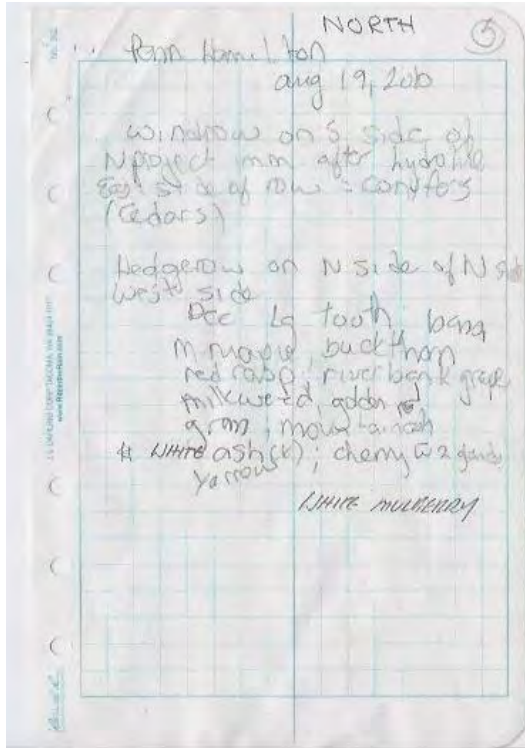 NORTH
5
Penn Hamilton
aug 19, 2010
windrow on S side of
N project mm after hydro line
East side of row : conifers
(Cedars)
Hedgerow on N side of N
west side
Dec Lg tooth
m maple, buckthorn
red rasp, riverbank grape
milkweed, golden
gram, mountain ash
WHITE ash (k); cherry w 2 glands
yarrow
WHITE MULBERRY
J.L. DARLING CORP. TACOMA, WA
www.RiteintheRain.com